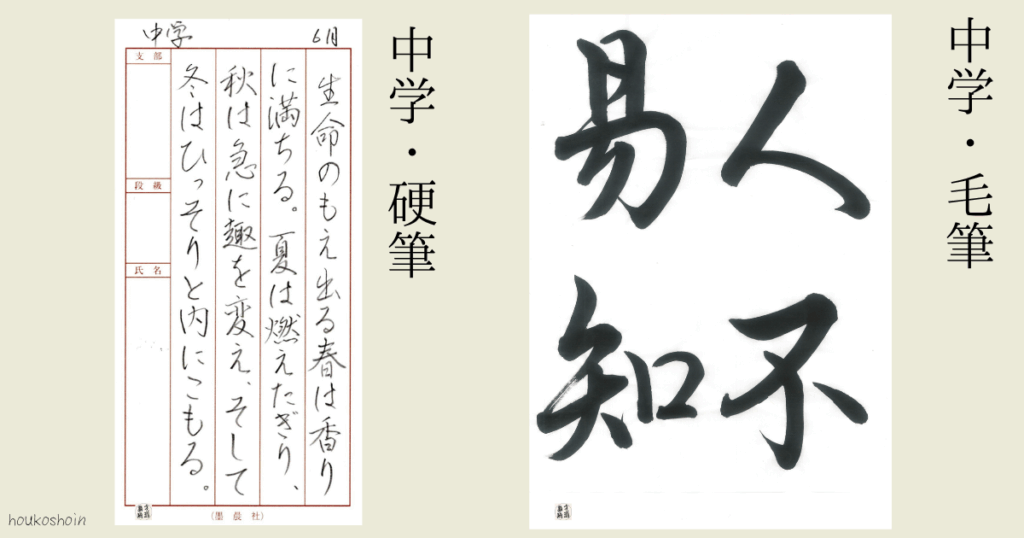 中学・毛筆
人不
易知
中学・硬筆
中字
6月
生命のもえ出る春は香り
に満ちる。夏は燃えたぎり、
秋は急に趣を変え、そして
冬はひっそりと内にこもる。
支部
段級
氏名
(墨晨社)
houkoshoin